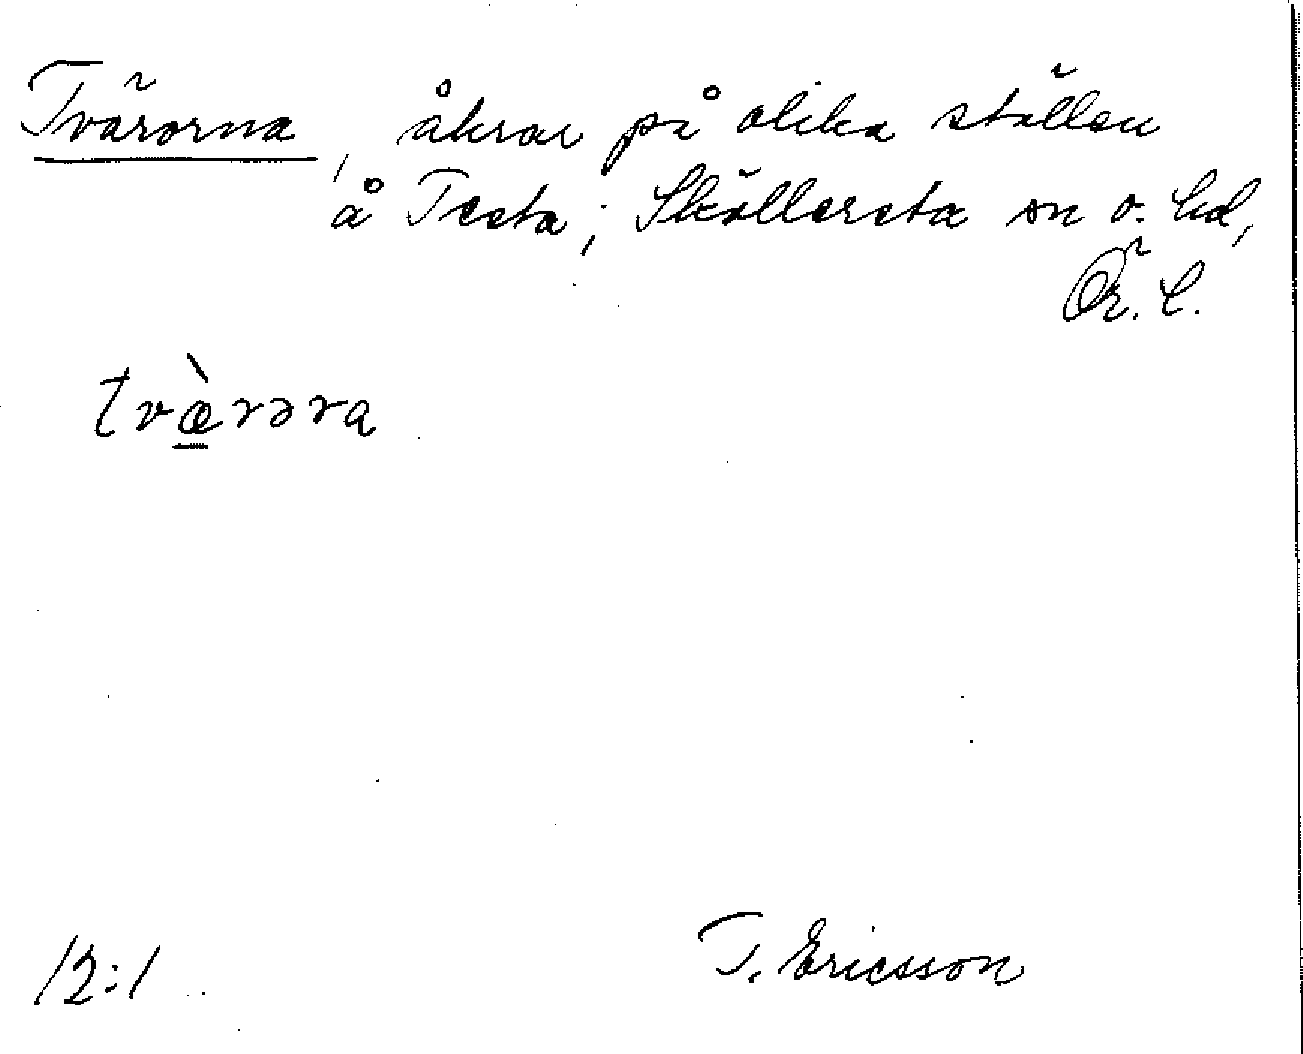 Tvärorna, åkrar på olika ställen
å Testa; Sköllersta sn o. hd,
Ör. l.
tvæ̀rəra
12:1
T. Ericsson